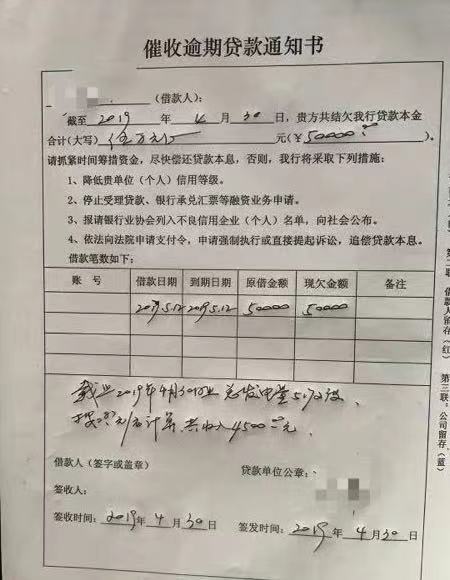 催收逾期贷款通知书
(借款人):
截至 2019 年 4 月 30 日，贵方共结欠我行贷款本金
合计(大写) 伍万元 元(￥50000.00)。
请抓紧时间筹措资金，尽快偿还贷款本息，否则，我行将采取下列措施：
1、降低贵单位（个人）信用等级。
2、停止受理贷款、银行承兑汇票等融资业务申请。
3、报请银行业协会列入不良信用企业（个人）名单，向社会公布。
4、依法向法院申请支付令，申请强制执行或直接提起诉讼，追偿贷款本息。
借款笔数如下：
账 号 借款日期 到期日期 原借金额 现欠金额 备注
2019.5.12 50000 50000
截止2019年4月30日 总发电量
元/ 计算 共收入4500 元
借款人（签字或盖章） 贷款单位公章：
签收人：
签收时间：2019年 4 月 30 日 签发时间：2019 年 4 月 30 日
联 借款人留存（红）
第三联：公司留存（蓝）